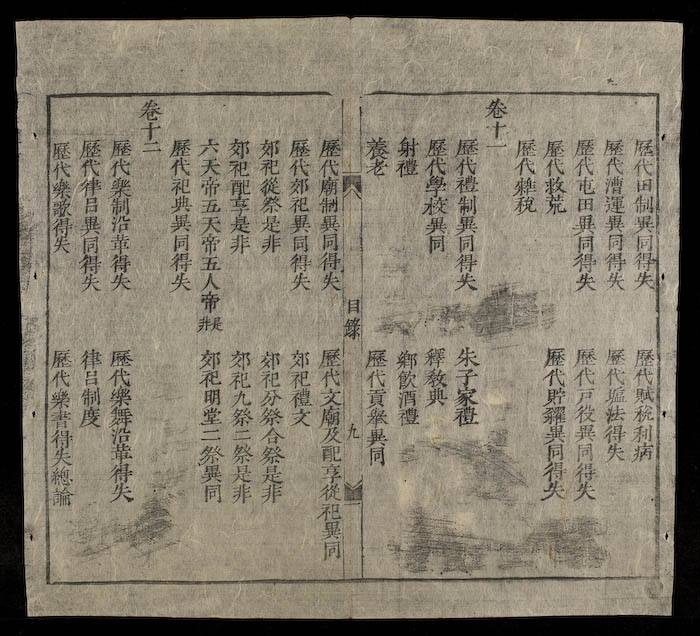 歷代田制異同得失 歷代賦稅利病
歷代漕運異同得失 歷代塩法得失
歷代屯田異同得失 歷代戶役異同得失
歷代救荒 歷代貯糴異同得失
歷代雜稅
卷十一
歷代禮制異同得失 朱子家禮
歷代學校異同 釋教典
射禮 鄉飲酒禮
養老 歷代貢舉異同
目錄 九
歷代廟制異同得失 歷代文廟及配享從祀異同
歷代郊祀異同得失 郊祀禮文
郊祀從祭是非 郊祀分祭合祭是非
郊祀配享是非 郊祀九祭二祭是非
六天帝五天帝五人帝是非 郊祀明堂二祭異同
歷代祀典異同得失
卷十二
歷代樂制沿革得失 歷代樂舞沿革得失
歷代律呂異同得失 律呂制度
歷代樂歌得失 歷代樂書得失總論